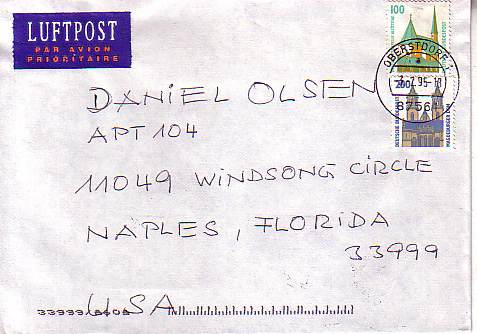 LUFTPOST
PAR AVION
PRIORITAIRE
100
OBERSTDORF 1
-7.2.95-18
8756
200
DEUTSCHE BUNDESPOST
MAGDEBURGER DOM
DANiEL OLSEN
APT 104
11049 WINDSONG CIRCLE
NAPLES, FLORiDA
33999
USA